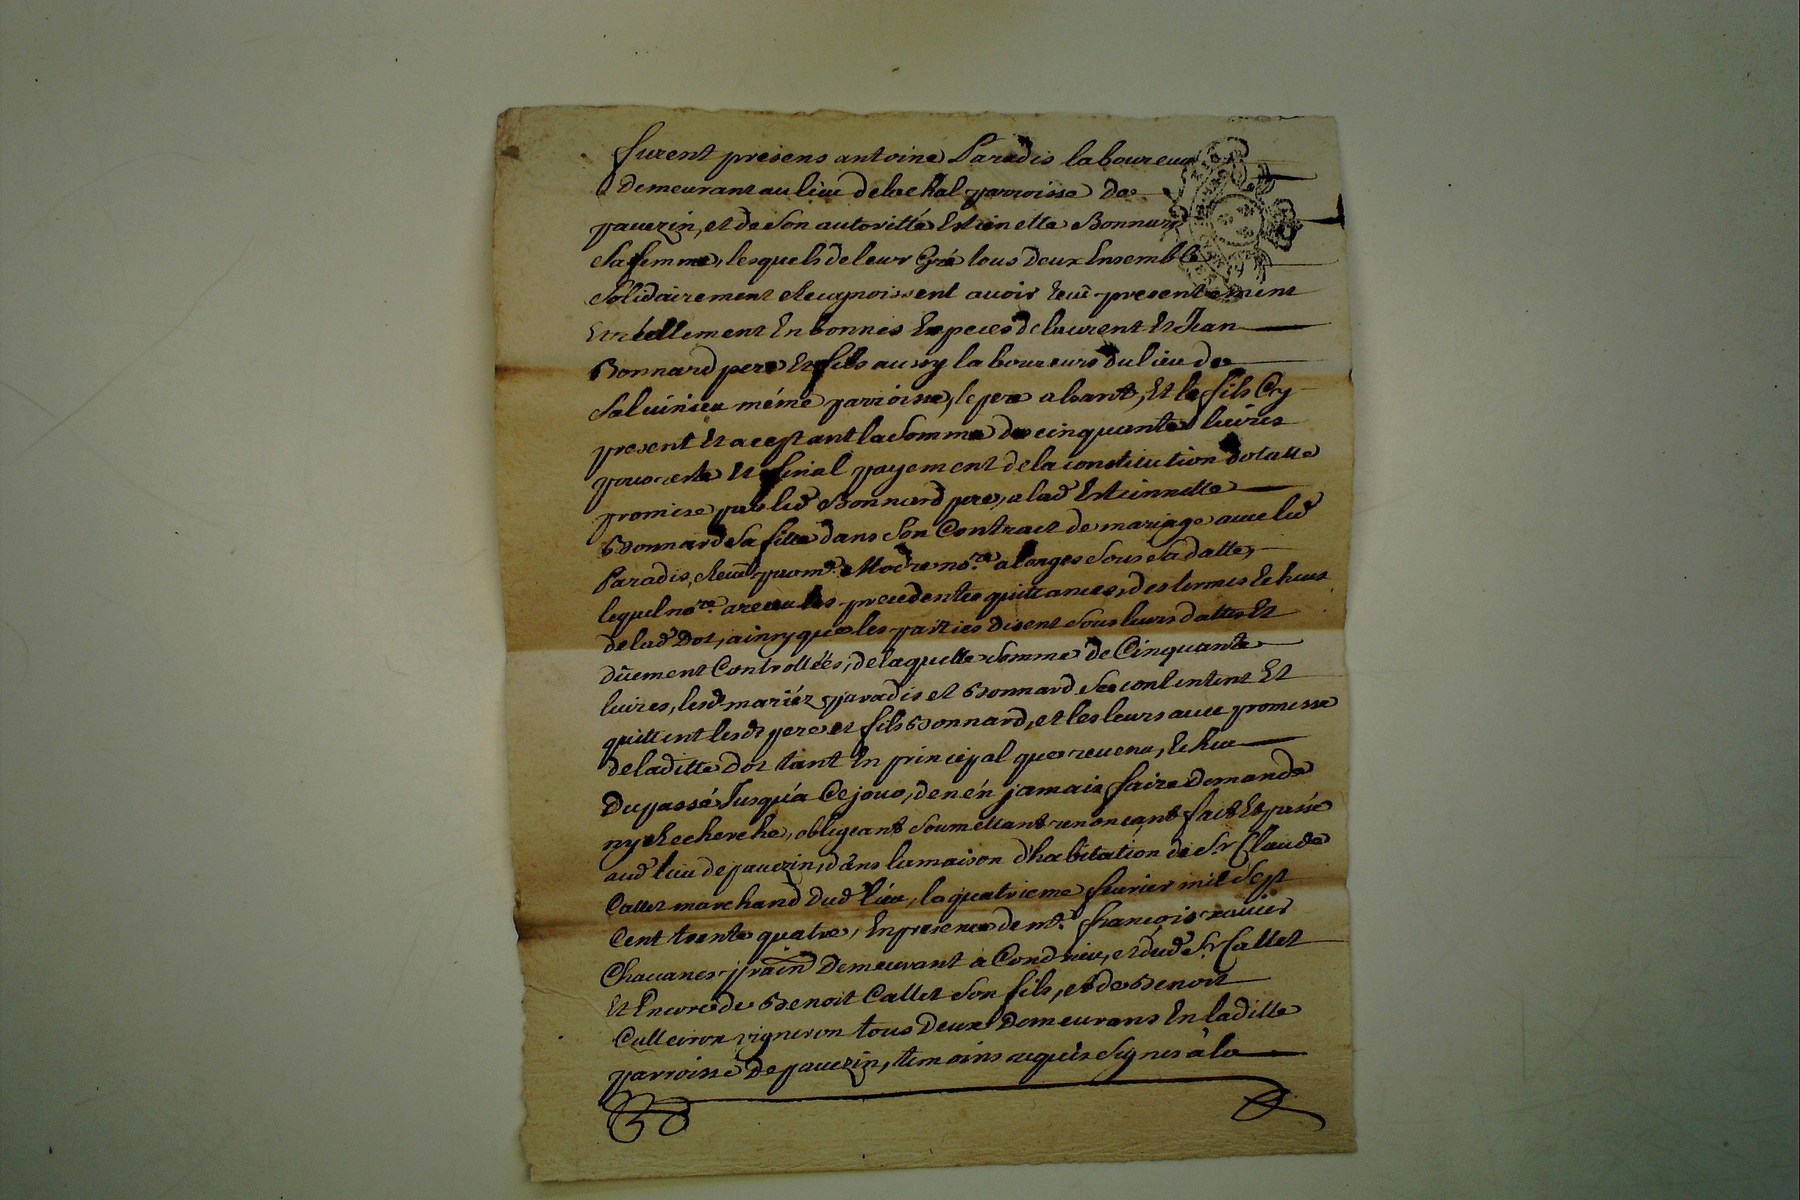 furent presens antoine Paradis laboureur
demeurant au lieu delachal parroisse de
pavezin, et de son autoritté Estienette Bonnard
sa femme, lesquels de leur Gré tous deux Ensemble
solidairement Recognoissent avoir Receu presentement
Et réellement En bonnes Especes de laurent Et Jean
Bonnard pere Et fils aussy laboureurs du lieu de
méme parroisse, le pere absant, Et le fils Cy
present Et aceptant la somme de cinquante livres
pour reste Et final payement de la constitution dotalle
promise par led Bonnard pere, a lad Esteinnette
Bonnard sa fille dans son Contract de mariage avec led
Paradis, Receu par me nore. a longes sous sa datte,
lequel nore. a receu les precedentes quittances, des termes Echeus
de lad Dot, ainsy que les parties disent sous leurs dattes Et
düement Controllées, de laquelle somme de Cinquante
livres, lesd mariéz paradis et Bonnard se contentent Et
quittent lesd pere et fils Bonnard, et les leurs avec promesse
de laditte Dot tant En principal que revenu, Echeu
Du passé Jusqu'a Ce jour, de n'én jamais faire Demande
ny Recherche, obligeant soumettant renonçant fait Et passé
aud lieu de pavezin, dans la maison d'habitation de Sr Claude
Callet marchand dud lieu, le quatrieme fevrier mil sept
Cent trente quatre, En presence de mr. françois xavier
Chavanes demeurant a Condrieu, et dud Sr Callet
Et Encore de Benoit Callet son fils, et de Benoit
vigneron tous Deux Demeurans En laditte
parroisse De pavezin, temoins requis signes à la